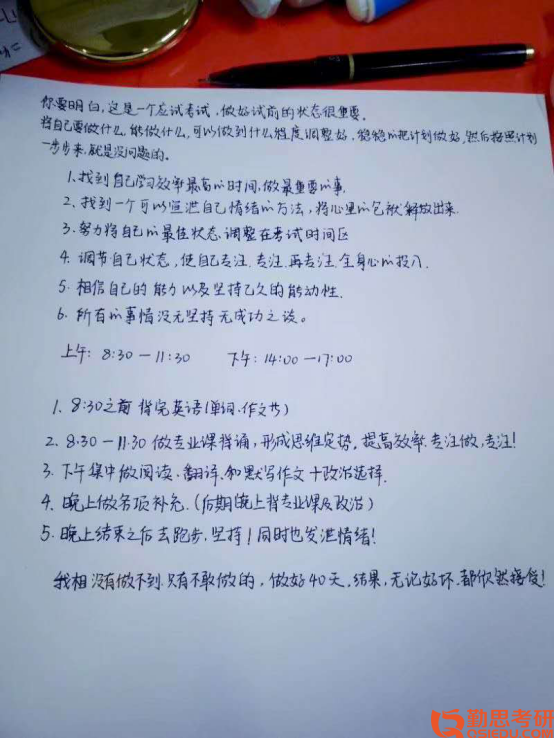 你要明白,这是一个应试考试,做好试前的状态很重要。
将自己要做什么,能做什么,可以做到什么程度调整好,稳稳的把计划做好,然后按照计划
一步步来,就是没问题的。
1.找到自己学习效率最高的时间,做最重要的事.
2.找到一个可以宣泄自己情绪的方法,将心里的包袱解放出来.
3.努力将自己的最佳状态调整在考试时间区
4.调节自己状态,使自己专注.专注.再专注.全身心的投入.
5.相信自己的能力以及坚持已久的能动性.
6.所有的事情没无坚持无成功之谈。
上午:8:30—11:30 下午:14:00—17:00
1.8:30之前背完英语(单词.作文书)
2.8:30—11.30做专业课背诵,形成思维定势.提高效率.专注做,专注!
3.下午集中做阅读.翻译.和默写作文+政治选择.
4.晚上做各项补充.(后期晚上背专业课及政治)
5.晚上结束之后去跑步,坚持!同时也发泄情绪!
我相没有做不到.只有不敢做的,做好40天.结果,无论好坏.都欣然接受!
勤思考研
QSIEDU.COM